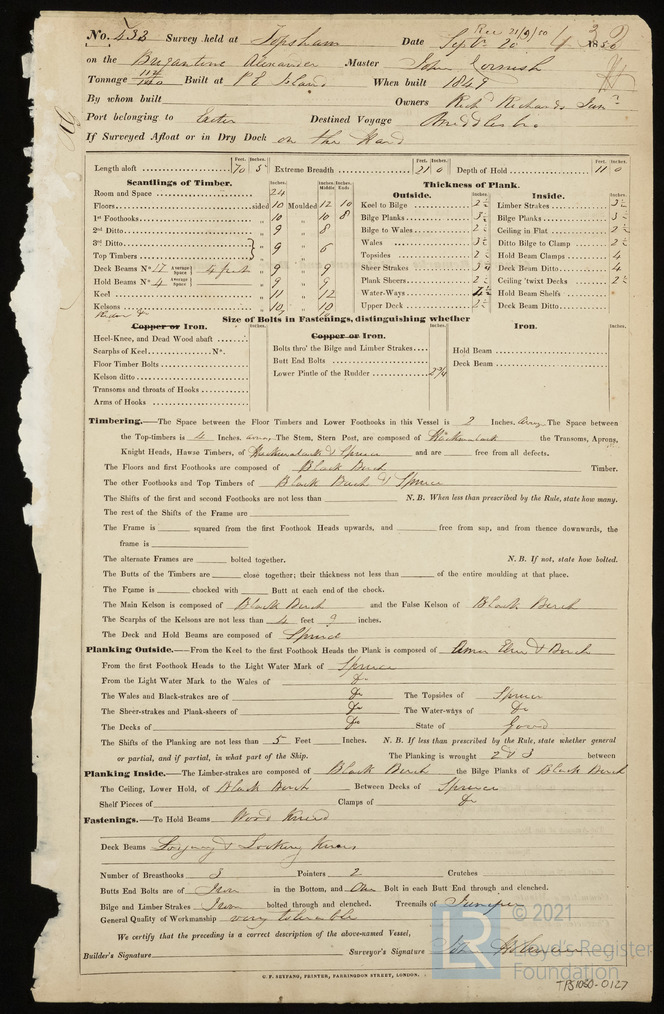 Rec 21/9/50
No. 433 Survey held at Topsham Date Sept. 20 1850
on the Brigantine Alexander Master John Cornish
Tonnage 114/140 Built at P E Island When built 1849
By whom built Owners Richd Richards Junr
Port belonging to Exeter Destined Voyage Middlesbro
If Surveyed Afloat or in Dry Dock on the Hard
Feet. Inches. Feet. Inches. Feet. Inches.
Length aloft 70 5 Extreme Breadth 21 0 Depth of Hold 11 0
Scantlings of Timber. Inches. Inches. Middle. Inches. Ends.
Room and Space 24
Floors sided 10 Moulded 12 10
1st Foothooks „ 10 „ 10 8
2nd Ditto „ 9 „ 8
3rd Ditto
Top Timbers „ 9 „ 6
Deck Beams No 17 Average Space 4 feet „ 9 „ 9
Hold Beams No 4 Average Space „ 9 „ 9
Keel „ 11 „ 12
Kelsons „ 10 „ 10
Thickness of Plank.
Outside. Inches. Inside. Inches.
Keel to Bilge 2½ Limber Strakes 3½
Bilge Planks 3½ Bilge Planks 3½
Bilge to Wales 2½ Ceiling in Flat 2½
Wales 3½ Ditto Bilge to Clamp 2½
Topsides 2½ Hold Beam Clamps 4
Sheer Strakes Deck Beam Ditto 4
Plank Sheers 2½ Ceiling 'twixt Decks 2½
Water-Ways Hold Beam Shelfs
Upper Deck 2½ Deck Beam Ditto
Size of Bolts in Fastenings, distinguishing whether
Copper or Iron. Inches. Copper or Iron. Inches. Iron. Inches.
Heel-Knee, and Dead Wood abaft
Scarphs of Keel No.
Floor Timber Bolts
Kelson ditto
Transoms and throats of Hooks
Arms of Hooks
Bolts thro' the Bilge and Limber Strakes
Butt End Bolts
Lower Pintle of the Rudder 2¾
Hold Beam
Deck Beam
Timbering.—The Space between the Floor Timbers and Lower Foothooks in this Vessel is 2 Inches. The Space between
the Top-timbers is 4 Inches. The Stem, Stern Post, are composed of Hackmatack the Transoms, Aprons,
Knight Heads, Hawse Timbers, of Hackmatack & Spruce and are free from all defects.
The Floors and first Foothooks are composed of Black Birch Timber.
The other Foothooks and Top Timbers of Black Birch & Spruce
The Shifts of the first and second Foothooks are not less than N.B. When less than prescribed by the Rule, state how many.
The rest of the Shifts of the Frame are
The Frame is squared from the first Foothook Heads upwards, and free from sap, and from thence downwards, the
frame is
The alternate Frames are bolted together. N.B. If not, state how bolted.
The Butts of the Timbers are close together; their thickness not less than of the entire moulding at that place.
The Frame is chocked with Butt at each end of the chock.
The Main Kelson is composed of Black Birch and the False Kelson of Black Birch
The Scarphs of the Kelsons are not less than 4 feet 9 inches.
The Deck and Hold Beams are composed of Spruce
Planking Outside.—From the Keel to the first Foothook Heads the Plank is composed of Amer Elm & Birch
From the first Foothook Heads to the Light Water Mark of Spruce
From the Light Water Mark to the Wales of Do
The Wales and Black-strakes are of Do The Topsides of Spruce
The Sheer-strakes and Plank-sheers of Do The Water-ways of Do
The Decks of Do State of Good
The Shifts of the Planking are not less than 5 Feet Inches. N.B. If less than prescribed by the Rule, state whether general
or partial, and if partial, in what part of the Ship. The Planking is wrought 2 & 3 between
Planking Inside.—The Limber-strakes are composed of Black Birch the Bilge Planks of Black Birch
The Ceiling, Lower Hold, of Black Birch Between Decks of Spruce
Shelf Pieces of Clamps of Do
Fastenings.—To Hold Beams Wood Kneed
Deck Beams Lodging & Locking Knees
Number of Breasthooks 3 Pointers 2 Crutches
Butts End Bolts are of Iron in the Bottom, and One Bolt in each Butt End through and clenched.
Bilge and Limber Strakes Iron bolted through and clenched. Treenails of Juniper
General Quality of Workmanship very tolerable
We certify that the preceding is a correct description of the above-named Vessel,
Builder's Signature Surveyor's Signature
G. F. SEYFANG, PRINTER, FARRINGDON STREET, LONDON.
LR © 2021
Lloyd's Register
Foundation
TPS1050-0127